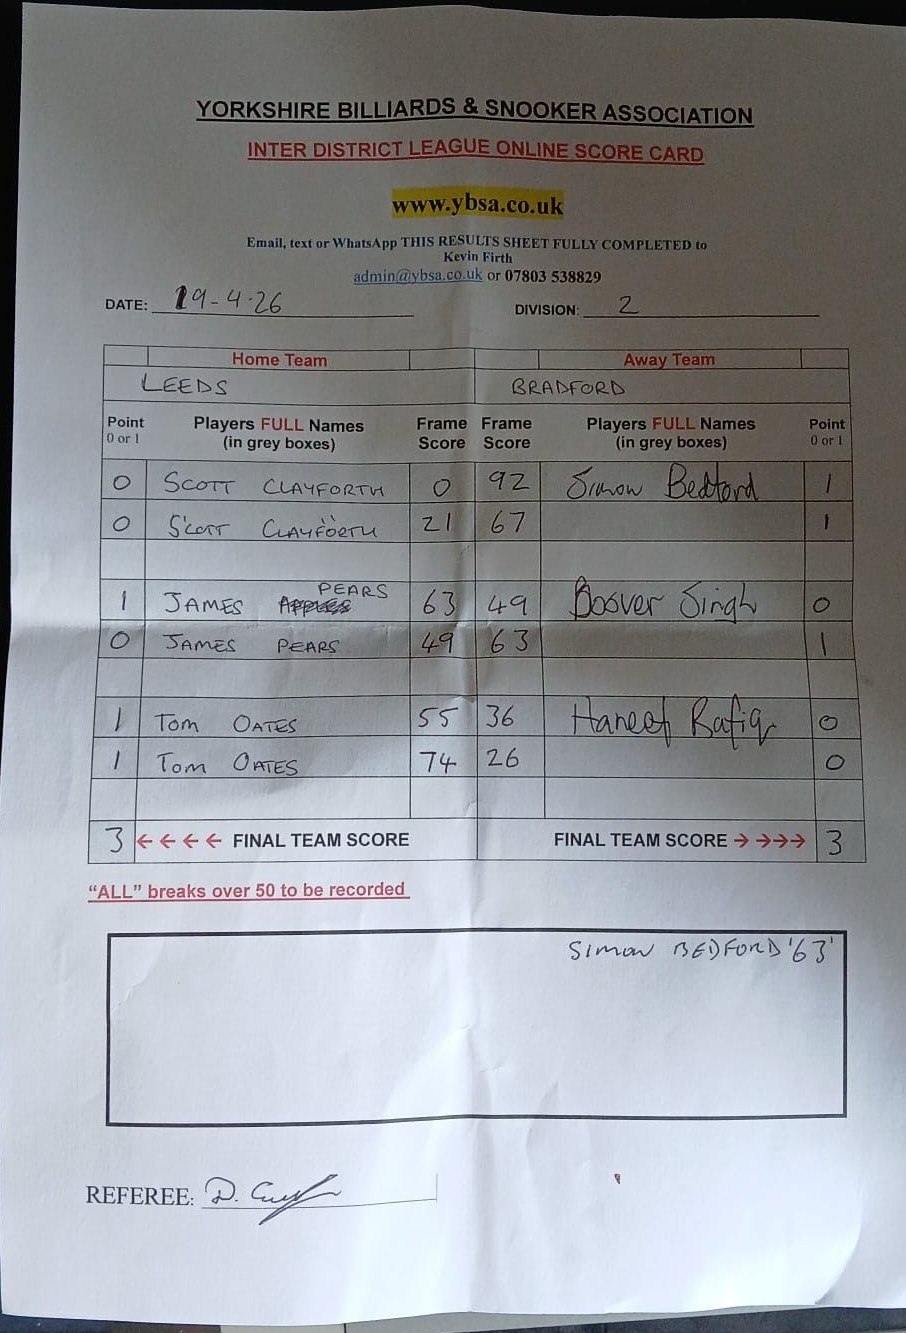 YORKSHIRE BILLIARDS & SNOOKER ASSOCIATION
INTER DISTRICT LEAGUE ONLINE SCORE CARD
www.ybsa.co.uk
Email, text or WhatsApp THIS RESULTS SHEET FULLY COMPLETED to
Kevin Firth
admin@ybsa.co.uk or 07803 538829
DATE: 19-4-26 DIVISION: 2
Home Team Away Team
LEEDS BRADFORD
Point Players FULL Names Frame Frame Players FULL Names Point
0 or 1 (in grey boxes) Score Score (in grey boxes) 0 or 1
0 SCOTT CLAYFORTH 0 92 Simon Bedford 1
0 SCOTT CLAYFORTH 21 67 1
1 JAMES PEARS 63 49 Boover Singh 0
0 JAMES PEARS 49 63 1
1 TOM OATES 55 36 Haneef Rafiq 0
1 TOM OATES 74 26 0
3 ← ← ← ← FINAL TEAM SCORE FINAL TEAM SCORE → → → → 3
“ALL” breaks over 50 to be recorded
SIMON BEDFORD '63'
REFEREE: D.